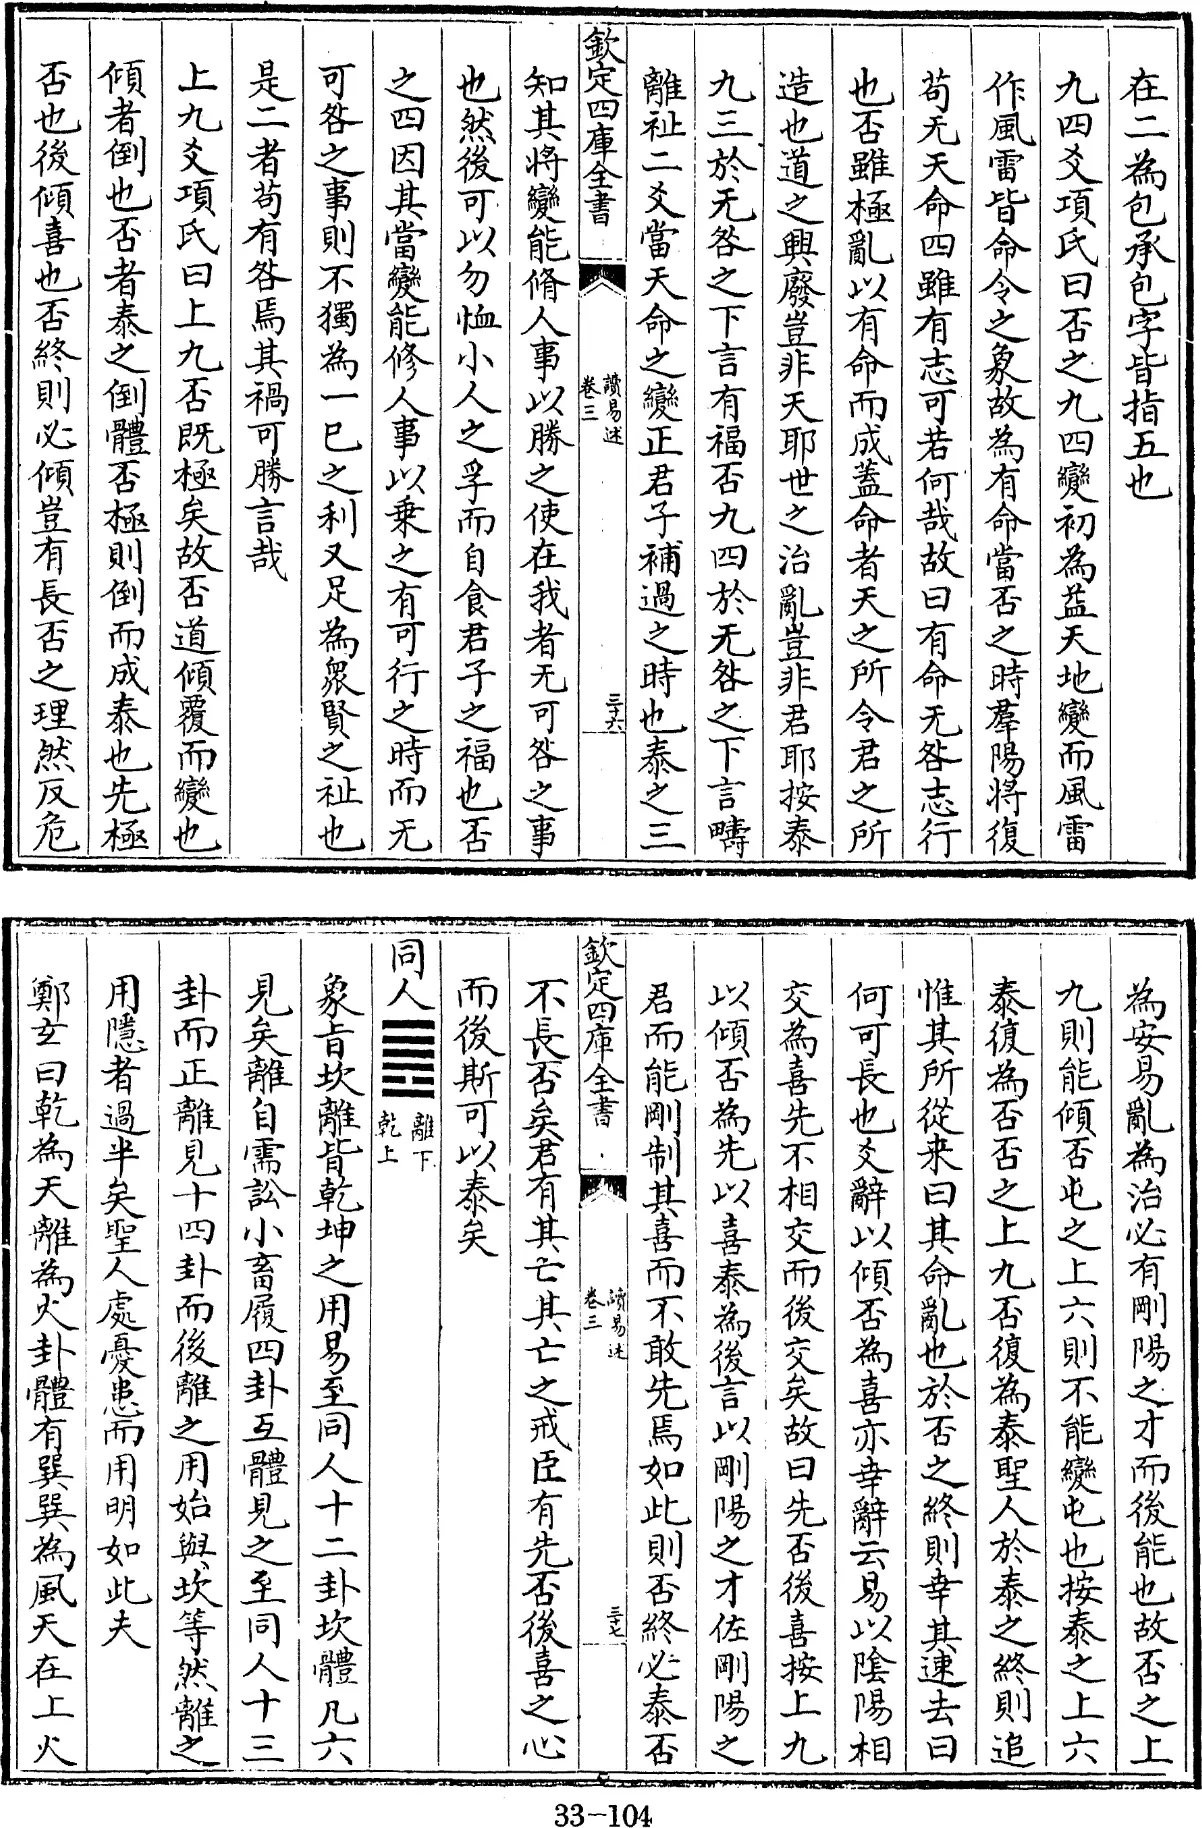 在二為包承包字皆指五也
九四爻項氏曰否之九四變初為益天地變而風雷
作風雷皆命令之象故為有命當否之時羣陽將復
苟无天命四雖有志可若何哉故曰有命无咎志行
也否雖極亂以有命而成蓋命者天之所令君之所
造也道之興廢豈非天耶世之治亂豈非君耶按泰
九三於无咎之下言有福否九四於无咎之下言疇
離祉二爻當天命之變正君子補過之時也泰之三
欽定四庫全書
讀易述
卷三
三十六
知其將變能脩人事以勝之使在我者无可咎之事
也然後可以勿恤小人之孚而自食君子之福也否
之四因其當變能修人事以乗之有可行之時而无
可咎之事則不獨為一已之利又足為衆賢之祉也
是二者苟有咎焉其禍可勝言哉
上九爻項氏曰上九否既極矣故否道傾覆而變也
傾者倒也否者泰之倒體否極則倒而成泰也先極
否也後傾喜也否終則必傾豈有長否之理然反危
為安易亂為治必有剛陽之才而後能也故否之上
九則能傾否屯之上六則不能變屯也按泰之上六
泰復為否否之上九否復為泰聖人於泰之終則追
惟其所從来曰其命亂也於否之終則幸其速去曰
何可長也爻辭以傾否為喜亦幸辭云易以陰陽相
交為喜先不相交而後交矣故曰先否後喜按上九
以傾否為先以喜泰為後言以剛陽之才佐剛陽之
君而能剛制其喜而不敢先焉如此則否終必泰否
欽定四庫全書
讀易述
卷三
三十七
不長否矣君有其亡其亡之戒臣有先否後喜之心
而後斯可以泰矣
同人䷌離下
乾上
象旨坎離皆乾坤之用易至同人十二卦坎體凡六
見矣離自需訟小畜履四卦互體見之至同人十三
卦而正離見十四卦而後離之用始與坎等然離之
用隱者過半矣聖人處憂患而用明如此夫
鄭玄曰乾為天離為火卦體有巽巽為風天在上火
33-104